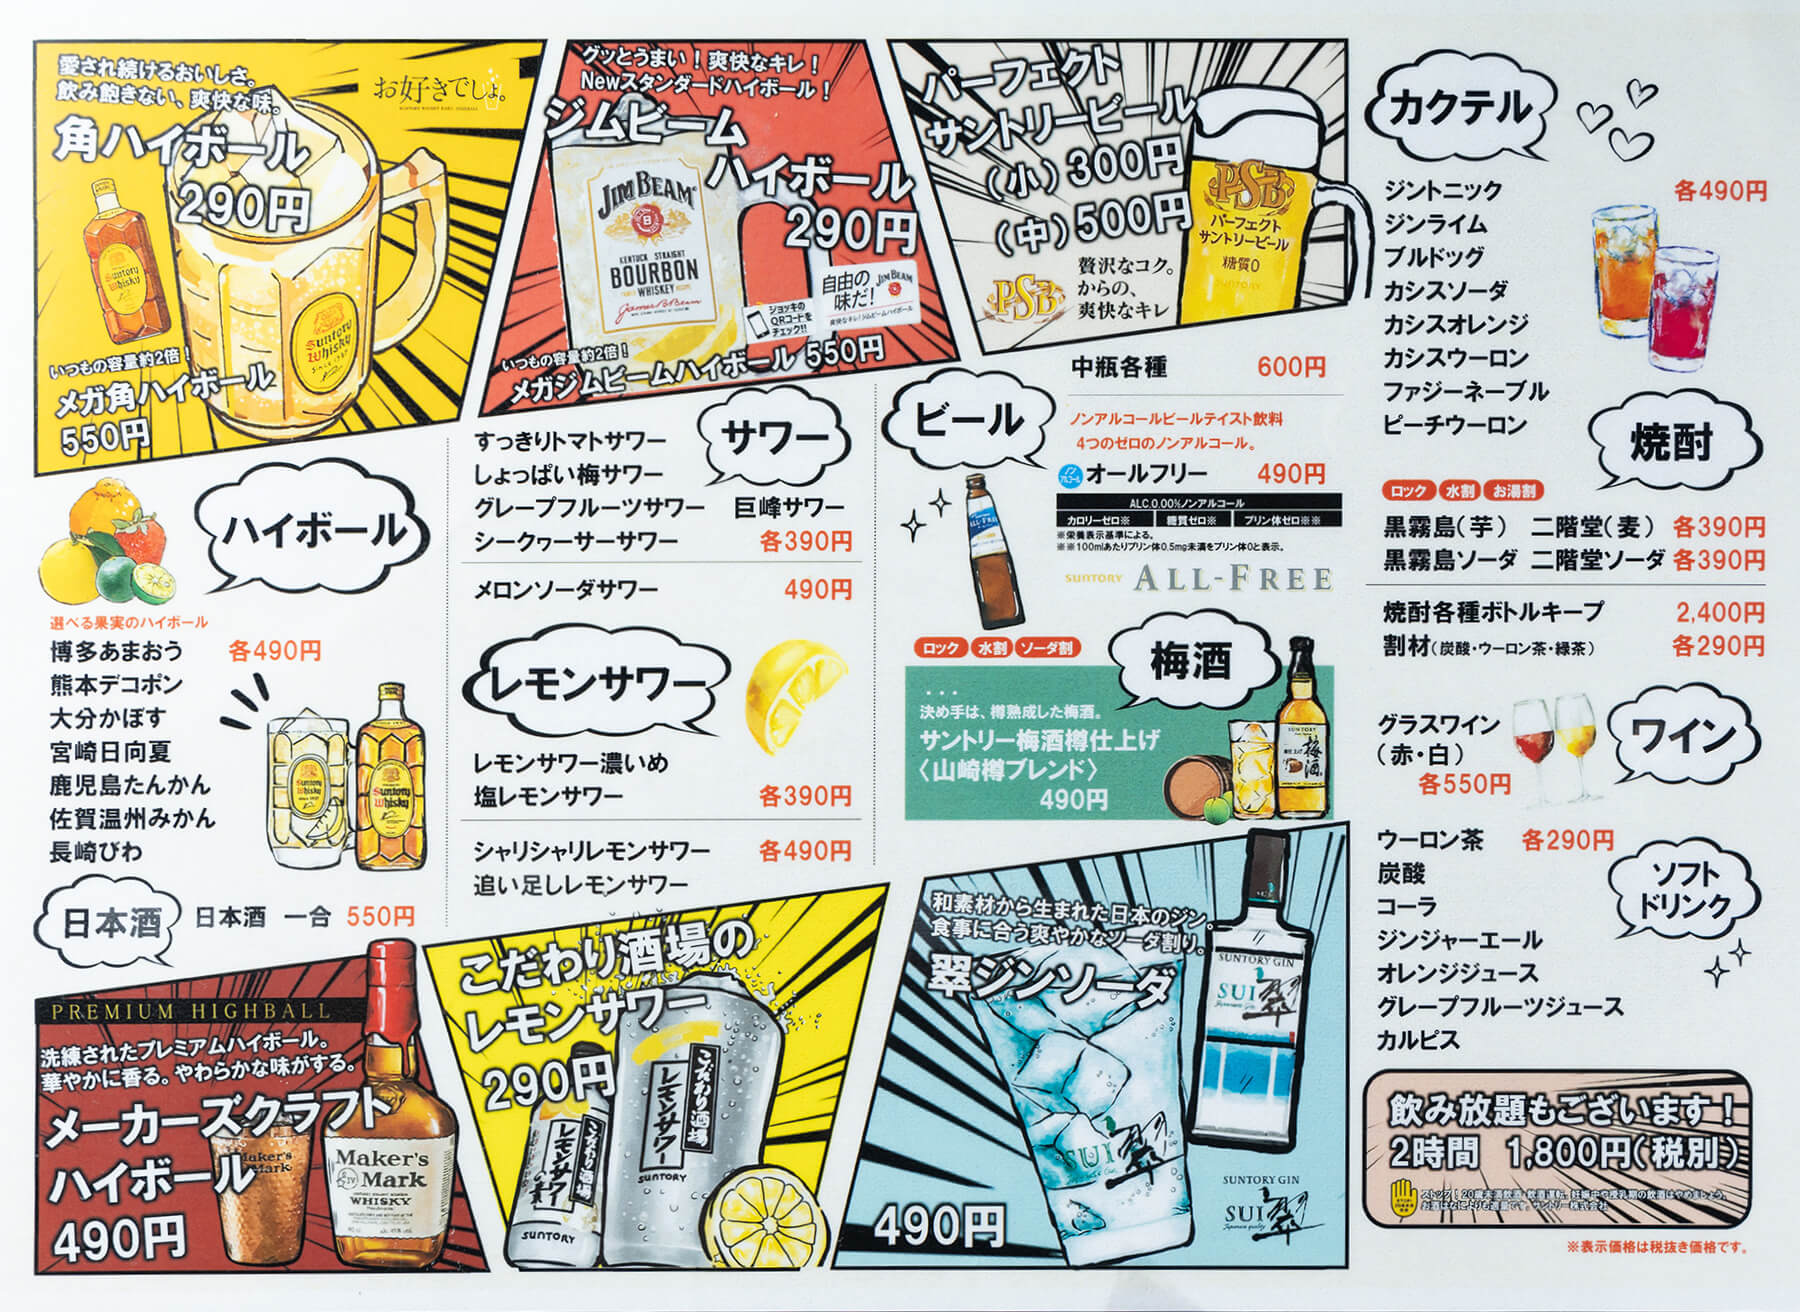 愛され続けるおいしさ。
飲み飽きない、爽快な味。
お好きでしょ。
角ハイボール
290円
Suntory
Whisky
いつもの容量約2倍！
メガ角ハイボール
550円
グッとうまい！爽快なキレ！
Newスタンダードハイボール！
ジムビーム
ハイボール
290円
JIM BEAM
KENTUCKY STRAIGHT
BOURBON
WHISKEY
James B. Beam
ジョッキの
QRコードを
チェック!!
自由の
味だ！
JIM BEAM
爽快なキレ！ジムビームハイボール
いつもの容量約2倍！
メガジムビームハイボール 550円
パーフェクト
サントリービール
（小）300円
（中）500円
PSB
パーフェクト
サントリービール
糖質0
SUNTORY
PSB
贅沢なコク。
からの、
爽快なキレ
ハイボール
選べる果実のハイボール
博多あまおう 各490円
熊本デコポン
大分かぼす
宮崎日向夏
鹿児島たんかん
佐賀温州みかん
長崎びわ
Suntory
Whisky
Suntory
Whisky
日本酒
日本酒 一合 550円
サワー
すっきりトマトサワー
しょっぱい梅サワー
グレープフルーツサワー 巨峰サワー
シークヮーサーサワー 各390円
メロンソーダサワー 490円
レモンサワー
レモンサワー濃いめ
塩レモンサワー 各390円
シャリシャリレモンサワー 各490円
追い足しレモンサワー
ビール
中瓶各種 600円
ノンアルコールビールテイスト飲料
4つのゼロのノンアルコール。
ノンアルコール
オールフリー 490円
ALC.0.00%ノンアルコール
カロリーゼロ※ 糖質ゼロ※ プリン体ゼロ※※
※栄養表示基準による。
※※100mlあたりプリン体0.5mg未満をプリン体0と表示。
ALL-FREE
SUNTORY ALL-FREE
ロック 水割 ソーダ割
梅酒
決め手は、樽熟成した梅酒。
サントリー梅酒樽仕上げ
〈山崎樽ブレンド〉
490円
SUNTORY
梅酒
PREMIUM HIGHBALL
洗練されたプレミアムハイボール。
華やかに香る。やわらかな味がする。
メーカーズクラフト
ハイボール
490円
Maker's
Mark
Maker's
Mark
WHISKY
こだわり酒場の
レモンサワー
290円
こだわり酒場
レモンサワー
SUNTORY
こだわり酒場
レモンサワーの素
SUNTORY
和素材から生まれた日本のジン。
食事に合う爽やかなソーダ割り。
翠ジンソーダ
490円
SUNTORY GIN
SUI 翠
SUI 翠
SUNTORY GIN
SUI 翠
カクテル
ジントニック 各490円
ジンライム
ブルドッグ
カシスソーダ
カシスオレンジ
カシスウーロン
ファジーネーブル
ピーチウーロン
焼酎
ロック 水割 お湯割
黒霧島（芋） 二階堂（麦） 各390円
黒霧島ソーダ 二階堂ソーダ 各390円
焼酎各種ボトルキープ 2,400円
割材（炭酸・ウーロン茶・緑茶） 各290円
ワイン
グラスワイン
（赤・白）
各550円
ソフト
ドリンク
ウーロン茶 各290円
炭酸
コーラ
ジンジャーエール
オレンジジュース
グレープフルーツジュース
カルピス
飲み放題もございます！
2時間 1,800円（税別）
ストップ！20歳未満飲酒・飲酒運転。妊娠中や授乳期の飲酒はやめましょう。
お酒はなによりも適量です。サントリー株式会社
※表示価格は税抜き価格です。